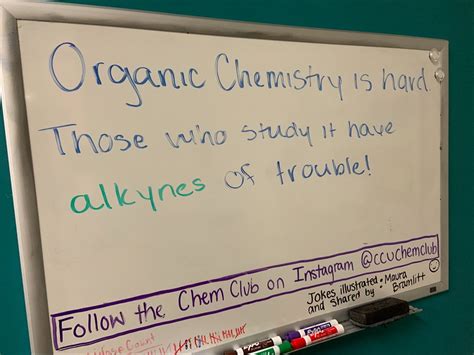 Organic Chemistry is hard
Those who study it have
alkynes of trouble!
Follow the Chem Club on Instagram @ccuchemclub
Jokes illustrated
and shared by: Maura
Bramlitt